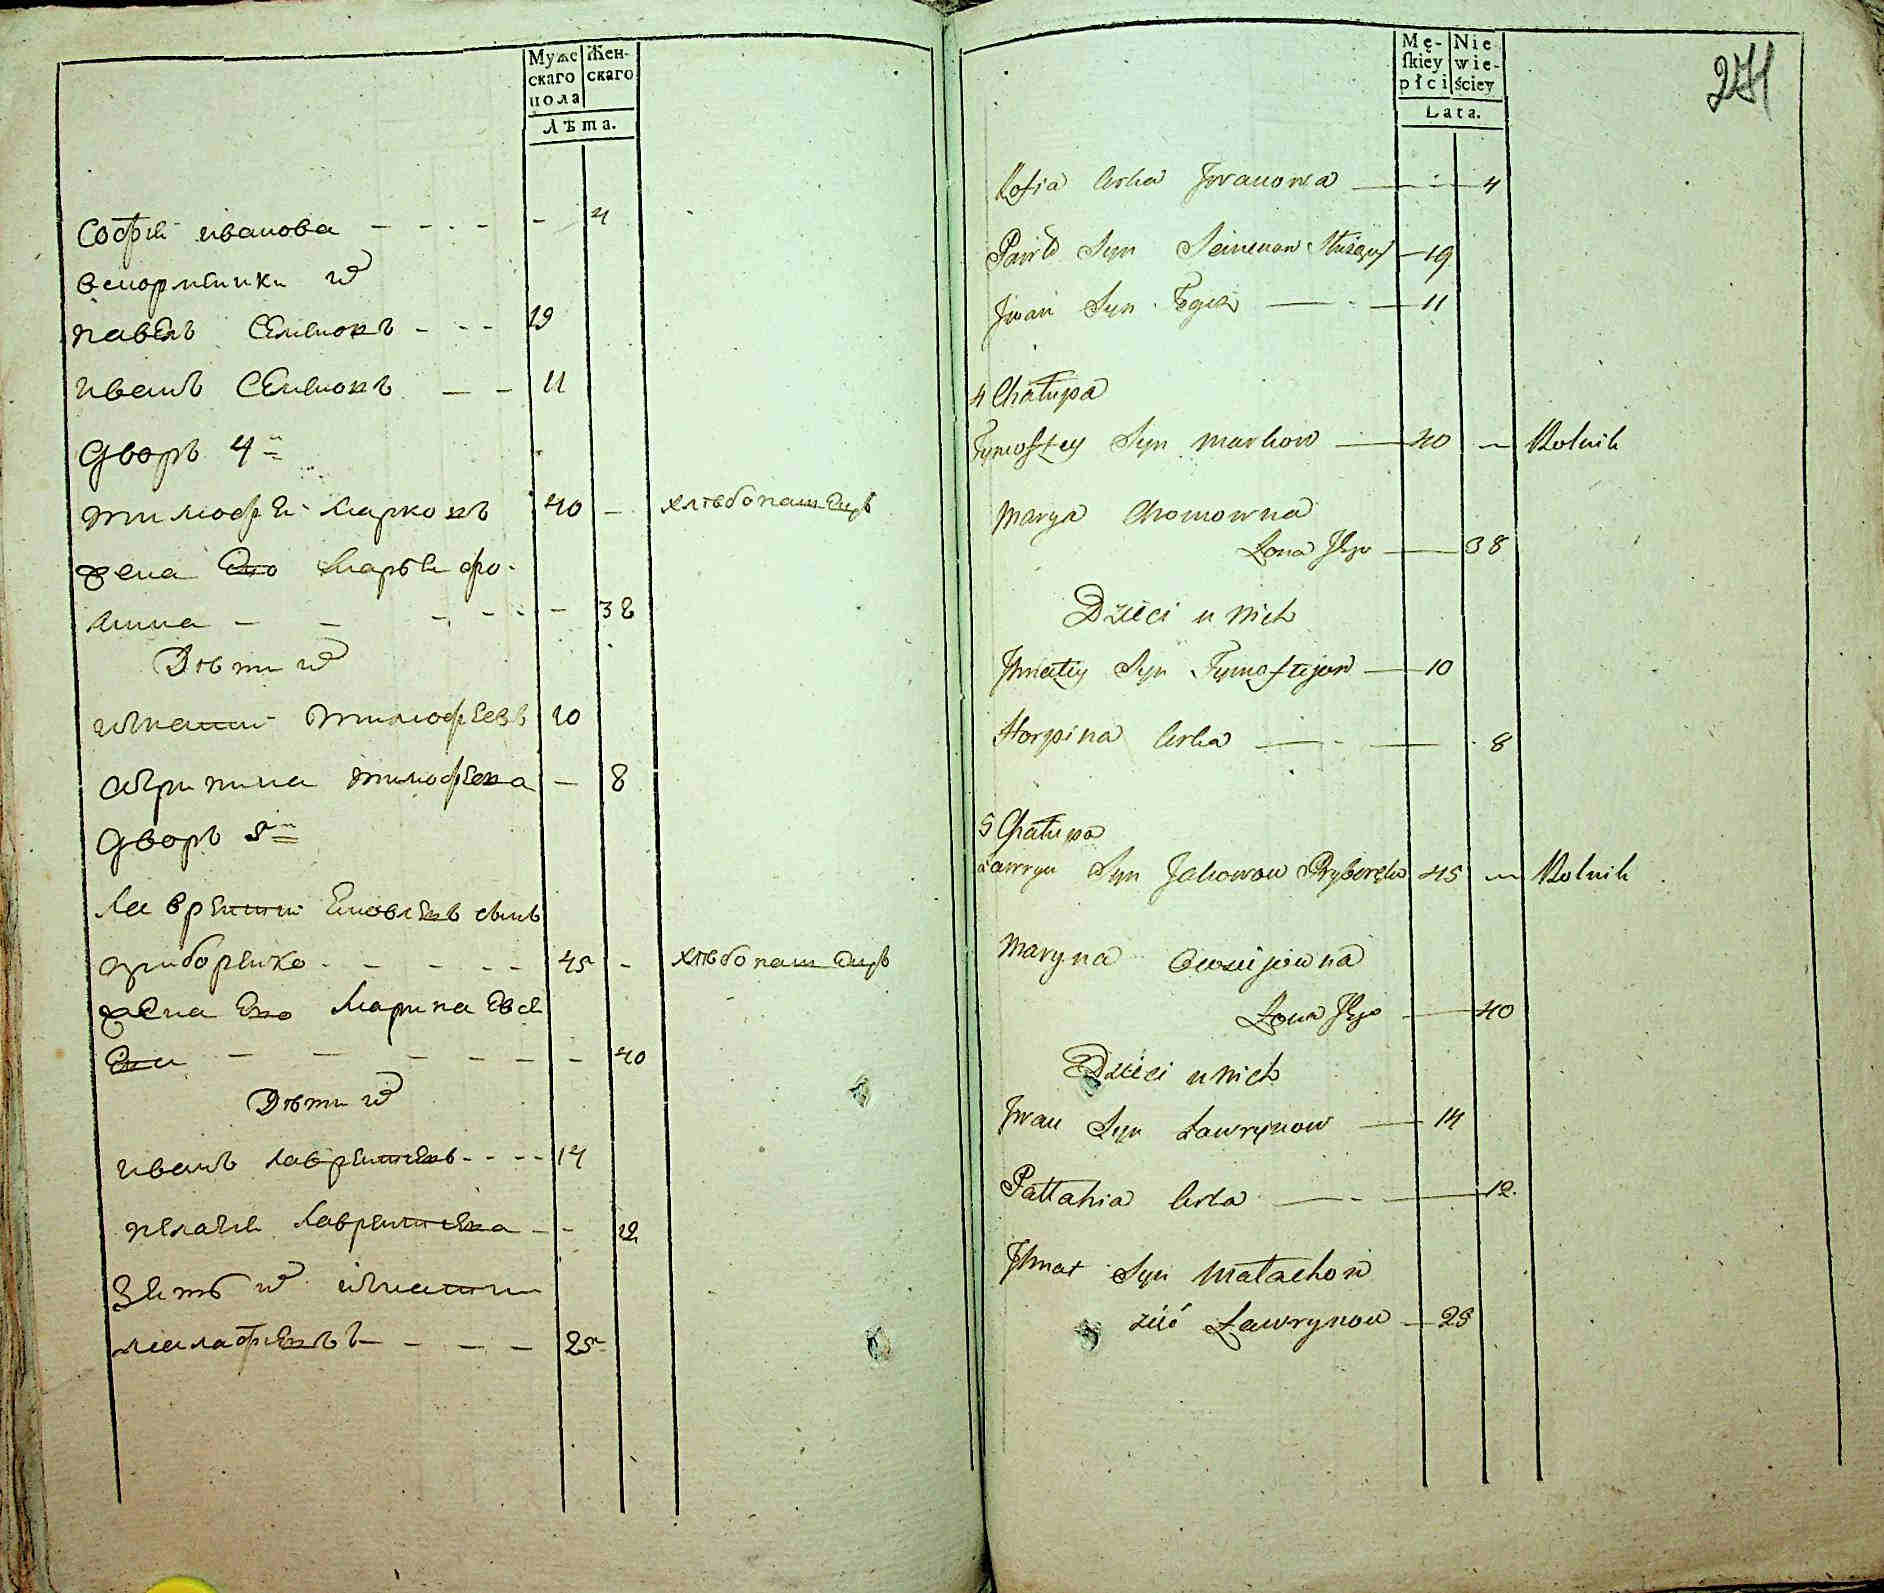 Муже
скаго
пола
Жен-
скаго
Лѣта.
Софія иванова - - - - - 4
Павелъ Семионъ - - - 19
иванъ Семионъ - - 11
дворъ 4й
тимофей Марковъ 40 - хлѣбопашецъ
жена Его Марья фо-
мина - - - - - - 38
Дѣти ихъ
игнатий тимофеевъ 10
агрипина тимофеева - 8
дворъ 5й
Лаврентий Яковлевъ сынъ
приборенко - - - - - 45 - хлѣбопашецъ
жена Его Марина Евсе
ева - - - - - - - 40
Дѣти ихъ
иванъ лаврентиевъ - - - - 14
пелагея Лаврентиева - - 12
Зять ихъ игнатий
малафиевъ - - - - 25
Mę-
ſkiey
płci
Nie
wie-
ściey
Lata.
271
Zofia Corka Iwanowa 4
Pawło Syn Semenow 19
Iwan Syn Tegoż 11
4 Chałupa
Tymoftey Syn Markow 40 Rolnik
Marya Chomowna
Żona Jego 38
Dzieci u Nich
Ihnatiy Syn Tymoftejow 10
Horpina Corka 8
5 Chałupa
Ławryn Syn Jakowow Pryboręko 45 Rolnik
Maryna Owsiejowna
Żona Jego 40
Dzieci u Nich
Iwan Syn Ławrynow 14
Pałłahia Corka 12
Ihnat Syn Małachow
zięć Ławrynow 25